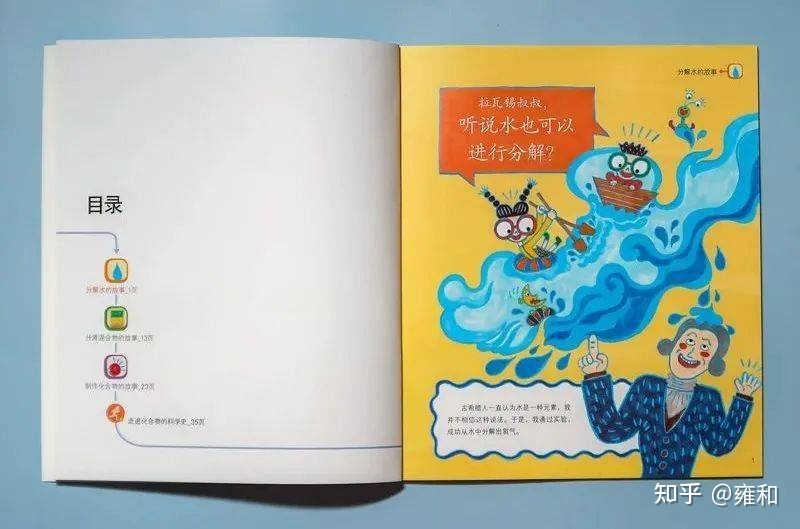 目录
分解水的故事_1页
分离混合物的故事_13页
制作化合物的故事_23页
走进化合物的科学史_35页
分解水的故事
拉瓦锡叔叔,
听说水也可以
进行分解?
古希腊人一直认为水是一种元素,我
并不相信这种说法。于是,我通过实验,
成功从水中分解出氢气。
1
知乎 @雍和